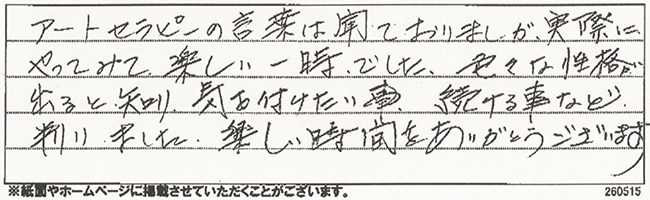 アートセラピーの言葉は聞いておりましが、実際に
やってみて、楽しい一時、でした、色々な性格が
出ると、知り、気を付けたい事、続ける事など、
判りました、楽しい時間をありがとうございます
※紙面やホームページに掲載させていただくことがございます。
260515